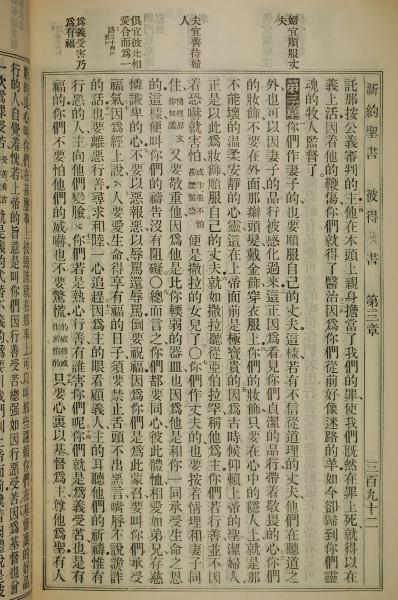 新約聖書 彼得 書 第三章 三百九十二
託那按公義審判的主他在木頭上親身擔當了我們的罪使我們既然在罪上死就得以在
義上活因着他的鞭傷你們就得了醫治因為你們從前好像迷路的羊如今卻歸到你們靈
魂的牧人監督了
第三章你們作妻子的也要順服自己的丈夫這樣若有不信從道理的丈夫他們在聽道之
外也可以因妻子的品行被感化過來這正因為看見你們貞潔的品行帶着敬畏的心你們
的妝飾不要在外面那辮頭髮戴金飾穿衣服上你們的妝飾只要在心中的隱人上就是那
不能壞的溫柔安靜的心靈這在上帝面前是極寶貴的因為古時候仰賴上帝的聖潔婦人
正是以此為妝飾順服自己的丈夫就如撒拉聽從亞伯拉罕稱他為主你們若行善並不因
着恐嚇就害怕 便是撒拉的女兒○你們作丈夫的也要按着情理和妻子同
住 又要敬重他因為他是比你輭弱的器皿也因為他是和你一同承受生命之恩
的這樣便叫你們的禱告沒有阻礙○總而言之你們都要同心彼此體恤相愛如弟兄存慈
憐謙卑的心不要以惡報惡以辱罵還辱罵倒要祝福因為你們是為此蒙召要叫你們承受
福氣因為經上說人要愛生命得享有福的日子須要禁止舌頭不出惡言嘴唇不說詭詐
的話也要離惡行善尋求和睦一心追趕因為主的眼看顧義人主的耳聽他們的祈禱惟有
行惡的人主向他們變臉你們若是熱心行善有誰害你們呢你們就是為義受苦也是有
福的你們不要怕他們的威嚇也不要驚慌 只要心裏以基督為主尊他為聖有人
婦宜順服丈夫
夫宜善待婦人
俱宜彼此相愛合而為一
為義受害乃為有福